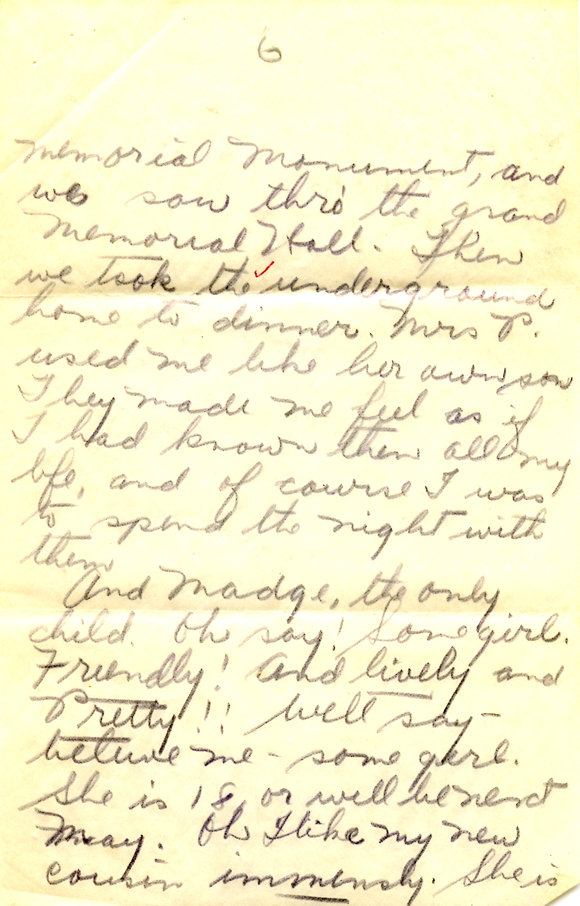 6
Memorial Monument, and
we saw thro' the grand
Memorial Hall. Then
we took the underground
home to dinner. Mrs P.
used me like her own son
They made me feel as if
I had known them all my
life, and of course I was
to spend the night with
them
And Madge, the only
child. Oh say! Some girl.
Friendly! And lively and
Pretty!! Well say-
believe me - some girl.
She is 18, or will be next
May. Oh I like my new
cousin immensly. She is